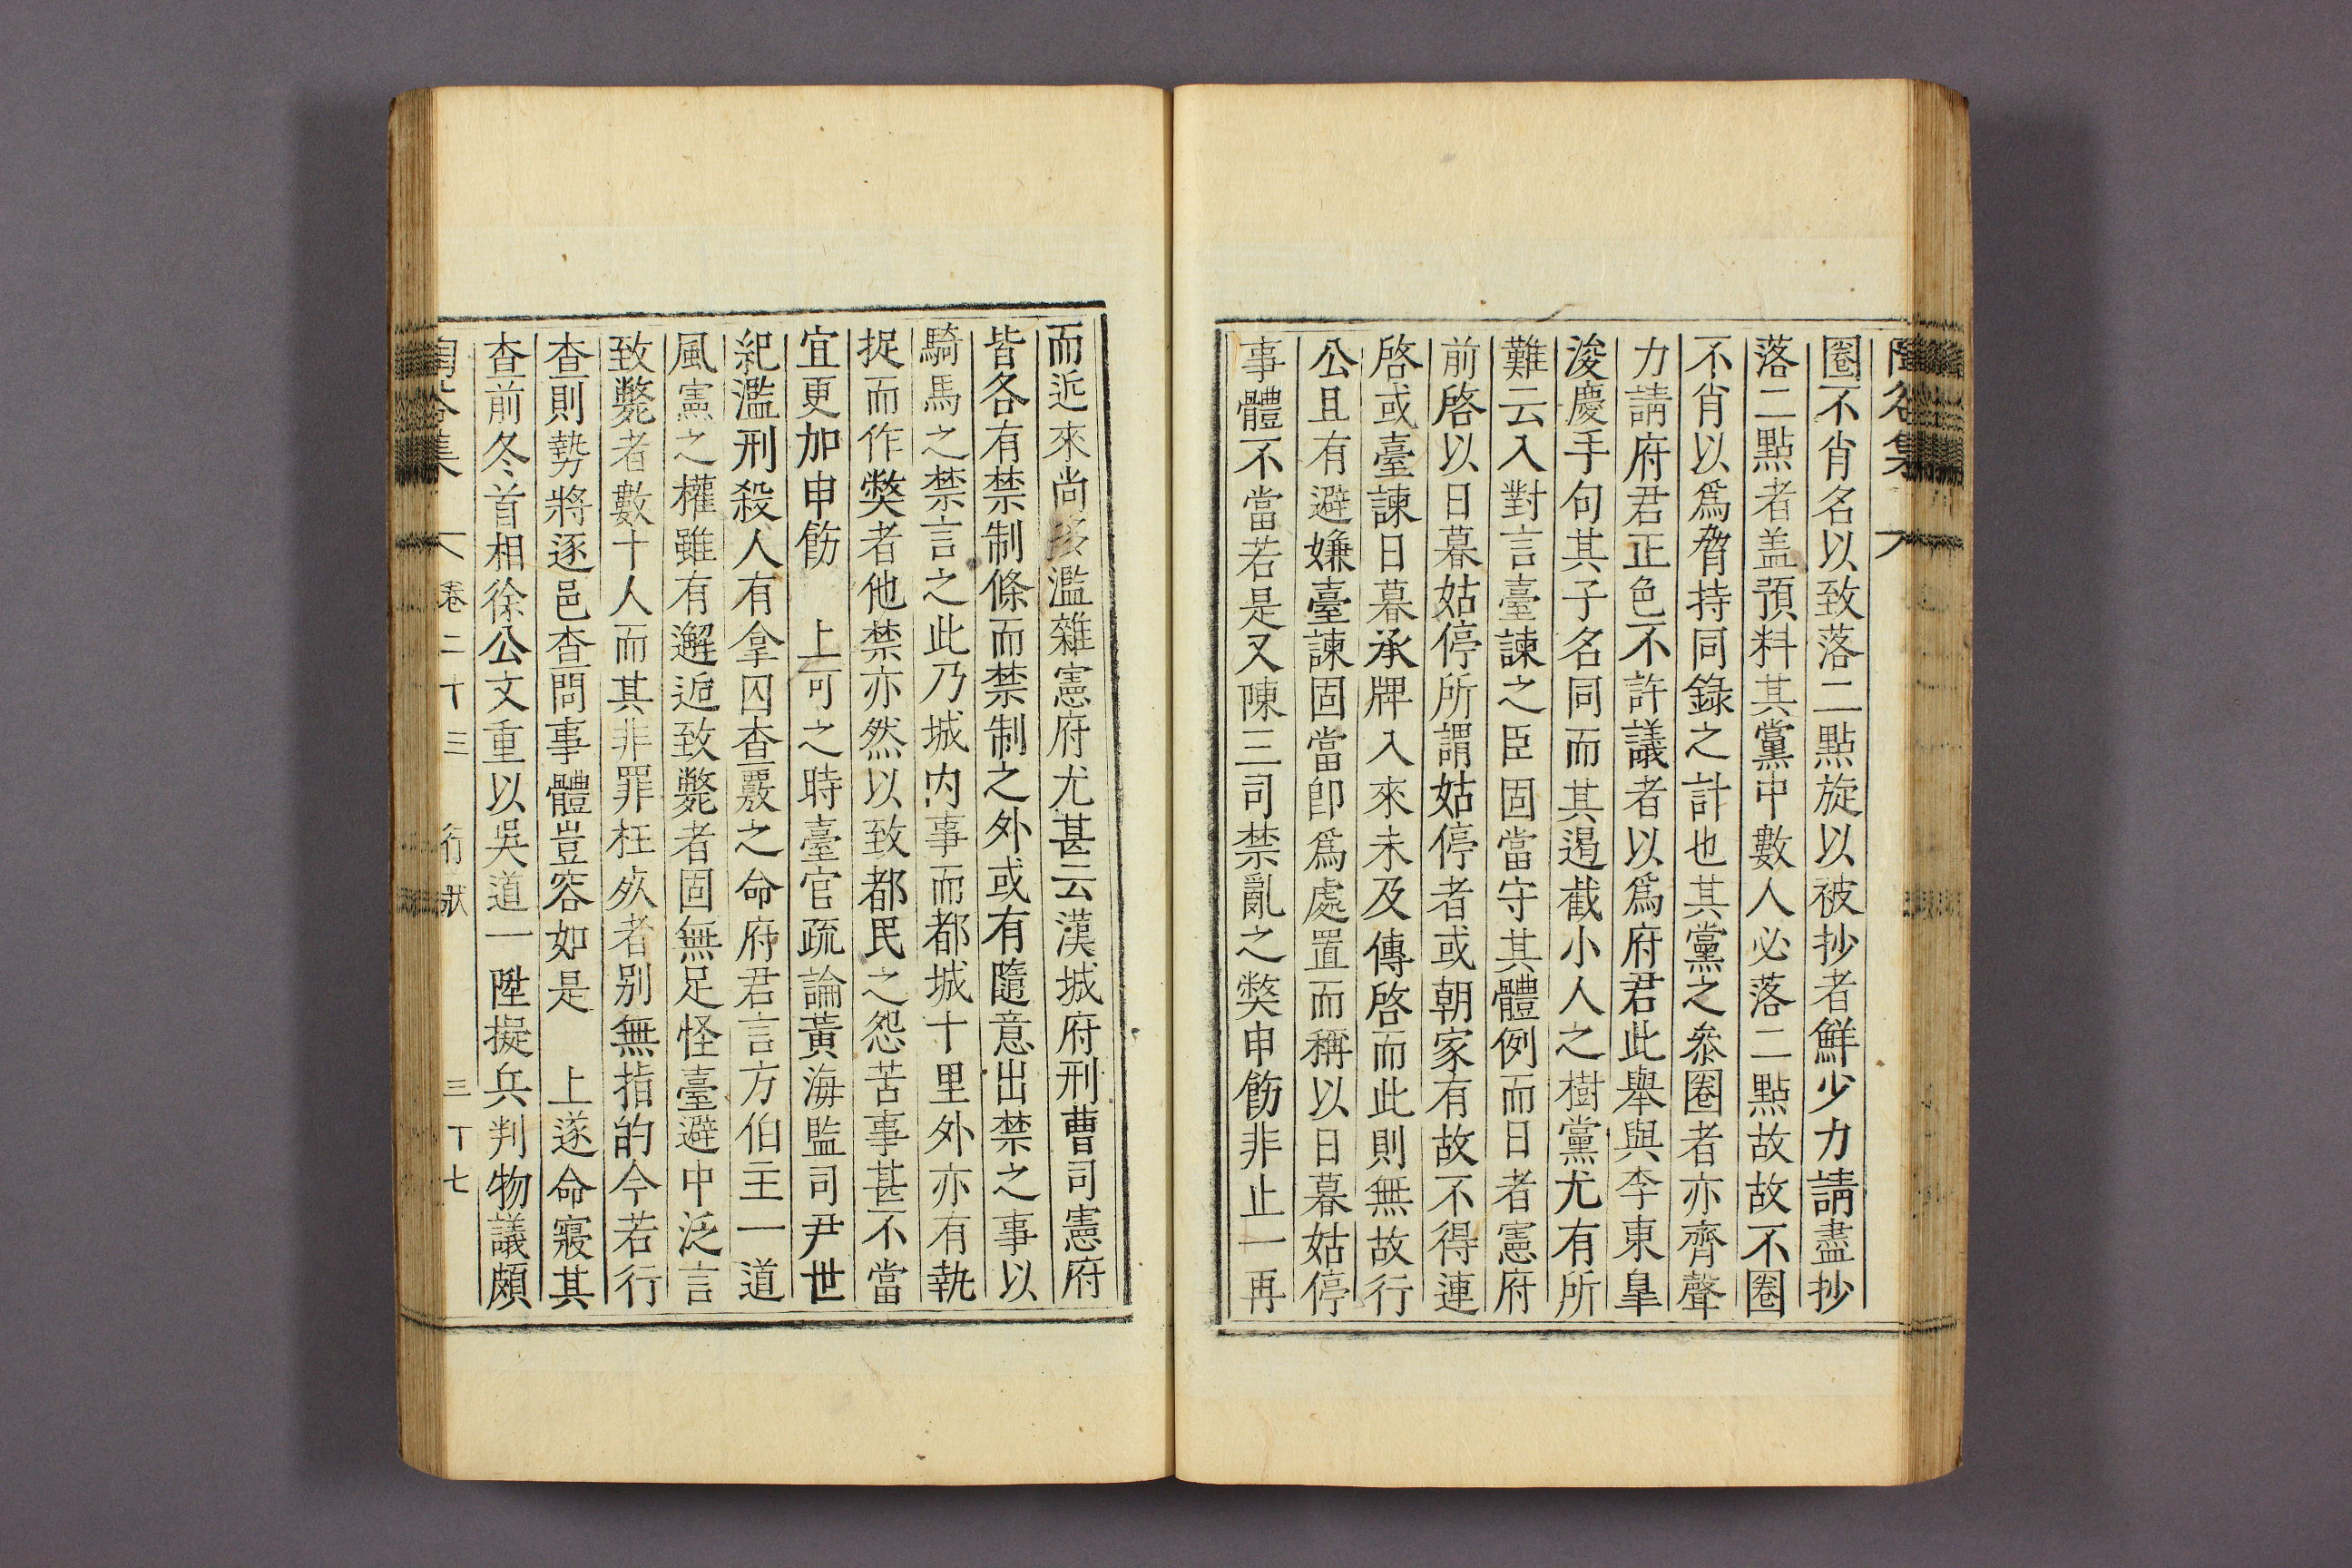 陶谷集
圈不肖名以致落二點旋以被抄者鮮少力請盡抄
落二點者盖預料其黨中數人必落二點故故不圈
不肖以爲脅持同錄之計也其黨之叅圈者亦齊聲
力請府君正色不許議者以爲府君此舉與李東臯
浚慶手句其子名同而其遏截小人之樹黨尤有所
難云入對言臺諫之臣固當守其體例而日者憲府
前啓以日暮姑停所謂姑停者或朝家有故不得連
啓或臺諫日暮承牌入來未及傳啓而此則無故行
公且有避嫌臺諫固當卽爲處置而稱以日暮姑停
事體不當若是又陳三司禁亂之獘申飭非止一再
而近來尚多濫雜憲府尤甚云漢城府刑曹司憲府
皆各有禁制條而禁制之外或有隨意出禁之事以
騎馬之禁言之此乃城内事而都城十里外亦有執
捉而作獘者他禁亦然以致都民之怨苦事甚不當
宜更加申飭 上可之時臺官疏論黃海監司尹世
紀濫刑殺人有拿囚查覈之命府君言方伯主一道
風憲之權雖有邂逅致斃者固無足怪臺避中泛言
致斃者數十人而其非罪枉死者别無指的今若行
查則勢將逐邑查問事體豈容如是 上遂命寢其
查前冬首相徐公文重以吳道一陞擬兵判物議頗
陶谷集 卷二十三 行狀 三十七